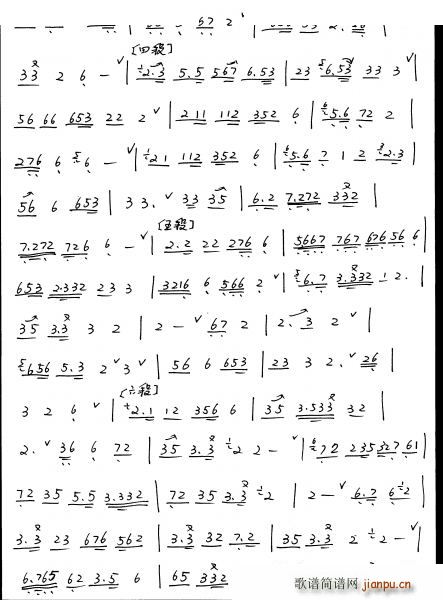 [四段]
33 2 6 - ∨ | 2.3 5.5 567 6.53 | 23 6.53 33 3 ∨
56 66 653 22 2 ∨ | 211 112 352 6 | 5.6 72 2
276 6 6 - ∨ | 21 112 352 6 | 5.6 7 1 2 2.3
56 6 653 | 3 3. ∨ 33 35 | 6.2 7.272 332 |
[五段]
7.272 726 6 - ∨ | 2.2 22 276 6 | 5667 767 676 56 6
653 2.332 23 3 | 3216 6 566 2 ∨ | 6.7 3.332 1 2.
35 3.3 3 2 | 2 - ∨ 67 2 | 2. 3 2 ∨ |
656 5.3 2 ∨ 3 ∨ | 56 6 653 | 23 3 2. ∨ 26 |
[六段]
3 2 6 ∨ | 2.1 12 356 6 | 35 3.533 32 |
2. ∨ 36 6 72 | 35 3.3 2 2 - ∨ | 72 235 327 61 |
72 35 5.5 3.332 | 72 35 3.3 2 | 2 - ∨ 6.7 6 2
3.3 23 676 562 | 3.3 32 7.2 | 35 3.3 2 2 - ∨ |
6.765 62 3.5 6 | 65 332
歌谱简谱网
jianpu.cn